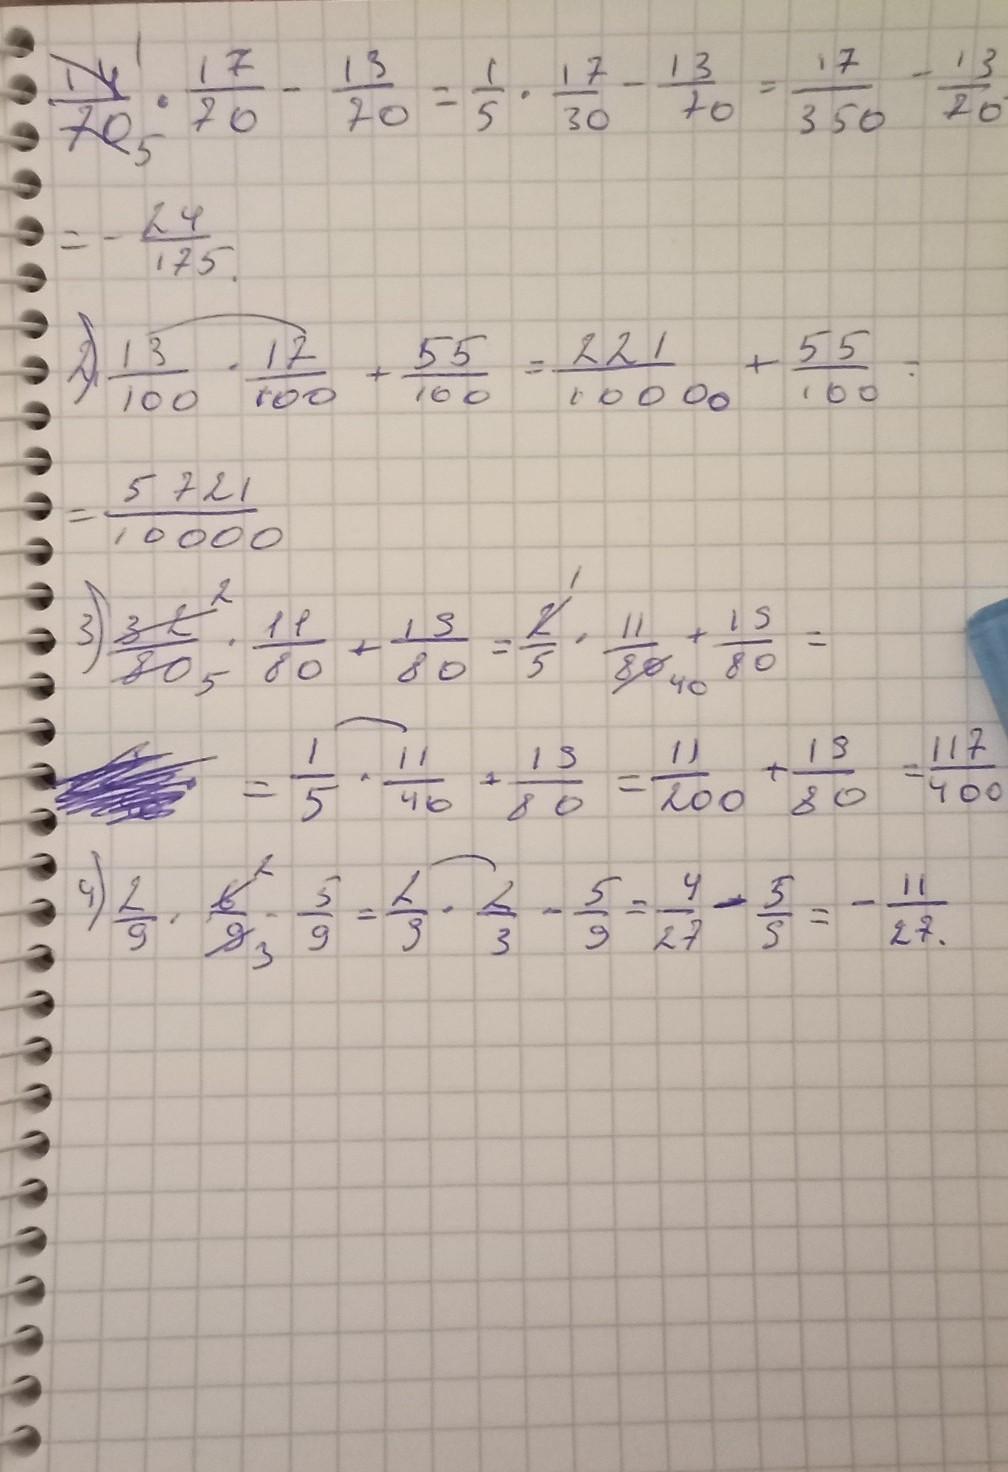 14/70 5 1 · 17/70 - 13/70 = 1/5 · 17/30 - 13/70 = 17/350 - 13/70
= - 24/175.
2) 13/100 · 17/100 + 55/100 = 221/10000 + 55/100 =
= 5721/10000
3) 32/80 2 5 · 11/80 + 19/80 = 2/5 1 · 11/80 40 + 19/80 =
= 1/5 · 11/40 + 19/80 = 11/200 + 19/80 = 117/400
4) 2/9 · 6/9 2 3 - 5/9 = 2/9 · 2/3 - 5/9 = 4/27 - 5/9 = - 11/27.